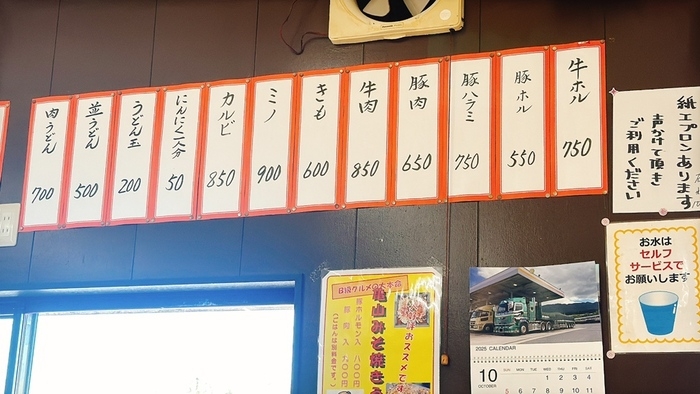 牛ホル 750
豚ホル 550
豚ハラミ 750
豚肉 650
牛肉 850
きも 600
ミノ 900
カルビ 850
にんにく一人分 50
うどん玉 200
並うどん 500
肉うどん 700
紙エプロンあります
声かけて頂き
ご利用ください
お水は
セルフ
サービスで
お願いします
B級グルメの大本命
亀山みそ焼きう
おススメです
豚ホルモン入 八〇〇円
豚肉入 九〇〇円
(ごはんは別料金です。)
2025 CALENDAR
10
OCTOBER
SUN MON TUE WED THU FRI SAT
1 2 3 4
5 6 7 8 9 10 11